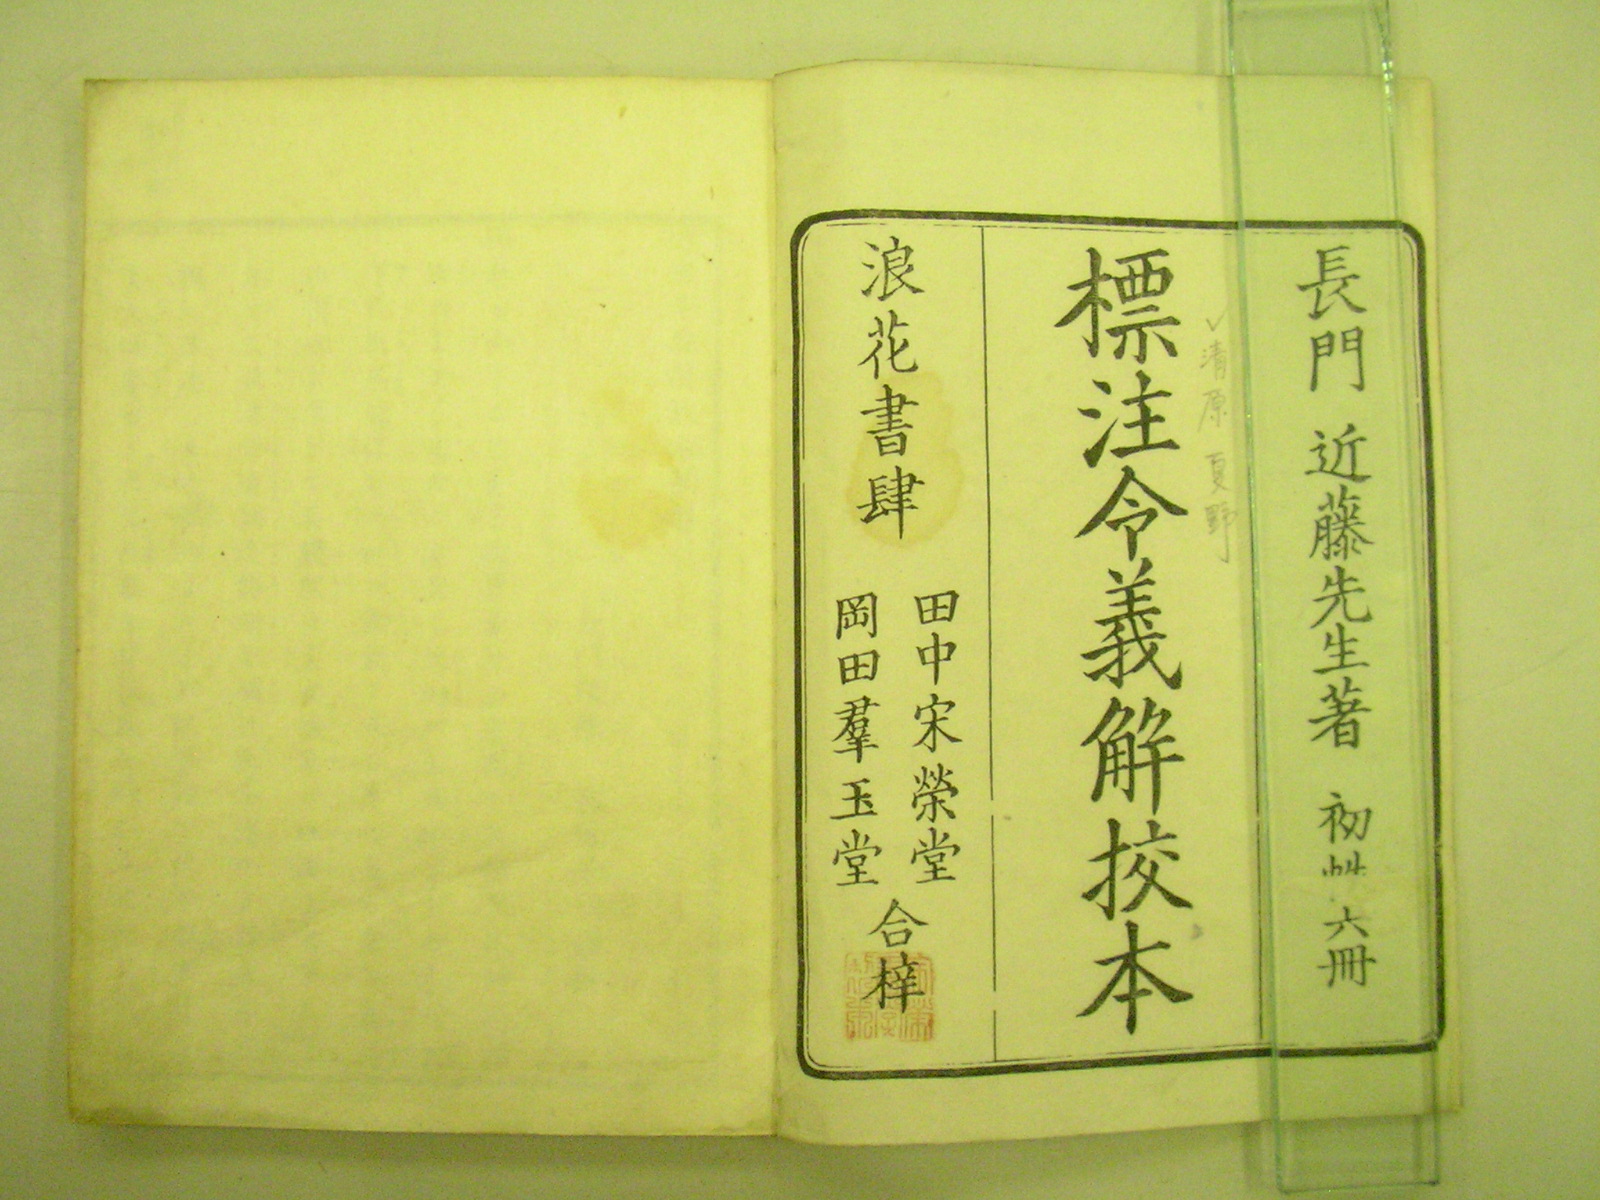 長門 近藤先生著 初艸 六冊
清原夏野
標注令義解挍本
浪花書肆
田中宋榮堂
岡田羣玉堂
合梓